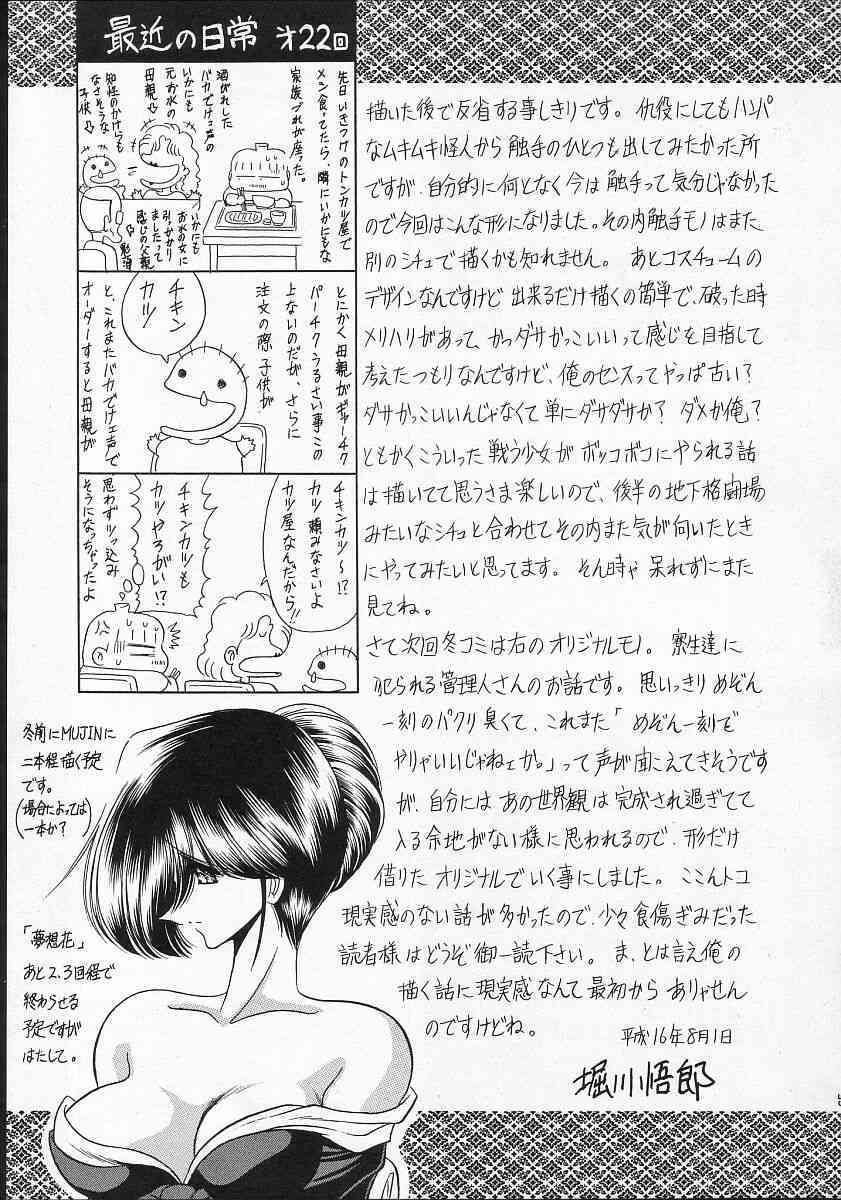 最近の日常 オ22回
先日いきつけのトンカツ屋で
メシ食ってたら、隣にいかにもな
家族づれが座った。
酒がれした
バカでけェ声の
いかにも
元お水の
母親↓
知性のかけらも
なさそうな
子供↓
いかにも
お水の女に
引っかかり
ましたって
感じの父親
とにかく母親がギャーチク
パーチクうるさい事この
上ないのだが、さらに
注文の際子供が
チキン
カツ
と、これまたバカでけェ声で
オーダーすると母親が
チキンカツ〜!?
カツ頼みなさいよ
カツ屋なんだから!!
チキンカツも
カツやろがい!?
思わずツッ込み
そうになっちゃったよ
描いた後で反省する事しきりです。仇役にしてもハンパ
なムキムキ怪人から触手のひとつも出してみたかった所
ですが、自分的に何となく今は触手って気分じゃなかった
ので今回はこんな形になりました。その内触手モノはまた
別のシチュで描くかも知れません。 あとコスチュームの
デザインなんですけど出来るだけ描くの簡単で、破った時
メリハリがあって、かつダサかっこいいって感じを目指して
考えたつもりなんですけど、俺のセンスってやっぱ古い?
ダサかっこいいんじゃなくて単にダサダサか? ダメか俺?
ともかくこういった戦う少女がボッコボコにやられる話
は描いてて思うさま楽しいので、後半の地下格闘場
みたいなシチュと合わせてその内また気が向いたとき
にやってみたいと思ってます。 そん時ゃ呆れずにまた
見てね。
さて次回冬コミは右のオリジナルモノ。寮生達に
犯られる管理人さんのお話です。思いっきりめぞん
一刻のパクリ臭くて、これまた「めぞん一刻で
やりゃいいじゃねェか。」って声が聞こえてきそうです
が、自分にはあの世界観は完成され過ぎてて
入る余地がない様に思われるので、形だけ
借りたオリジナルでいく事にしました。ここんトコ
現実感のない話が多かったので、少々食傷ぎみだった
読者様はどうぞ御一読下さい。 ま、とは言え俺の
描く話に現実感なんて最初からありゃせん
のですけどね。
平成16年8月1日
堀川悟郎
冬前にMUJINに
二本程描く予定
です。
(場合によっては
一本か?)
「夢想花」
あと2、3回程で
終わらせる
予定ですが
はたして。